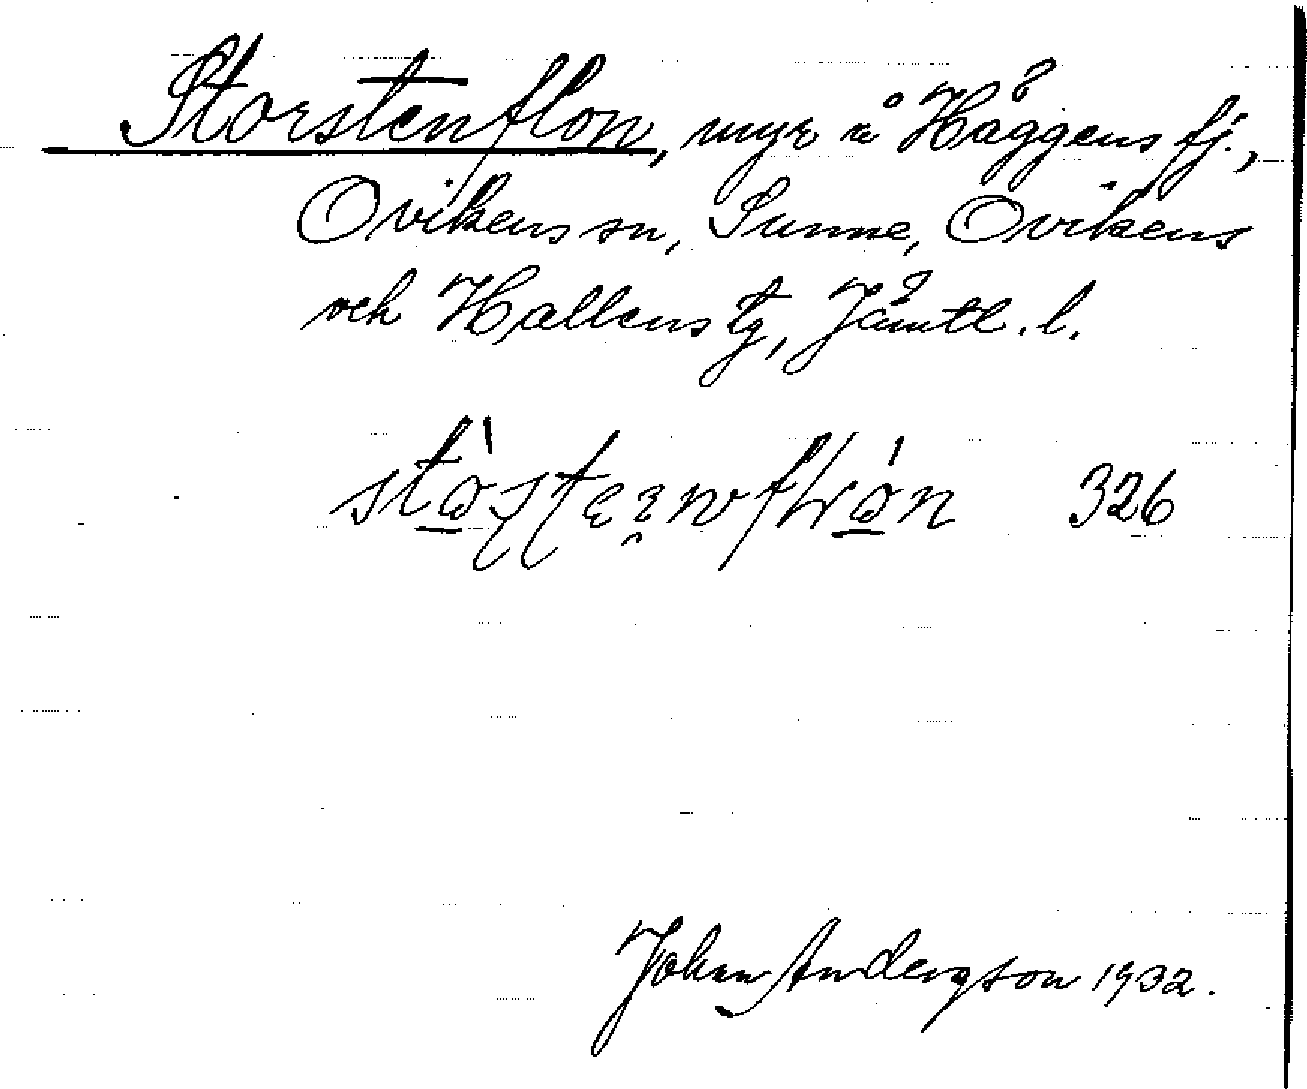 Storstenflon, myr å Häggens fj.,
Ovikens sn, Sunne, Ovikens
och Hallens tg, Jämtl. l.
326
John Andersson 1932.